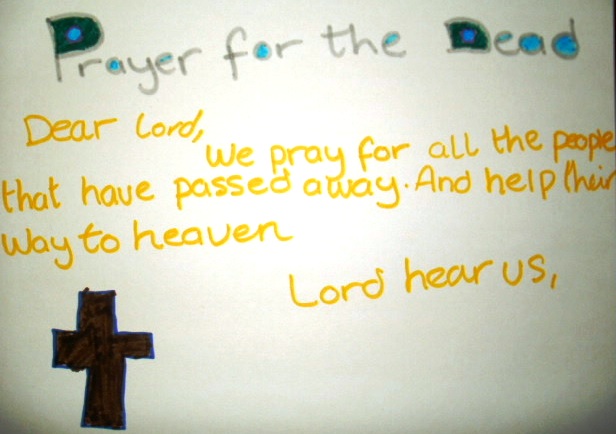 Prayer for the Dead
Dear Lord,
We pray for all the people
that have passed away. And help their
way to heaven
Lord hear us,